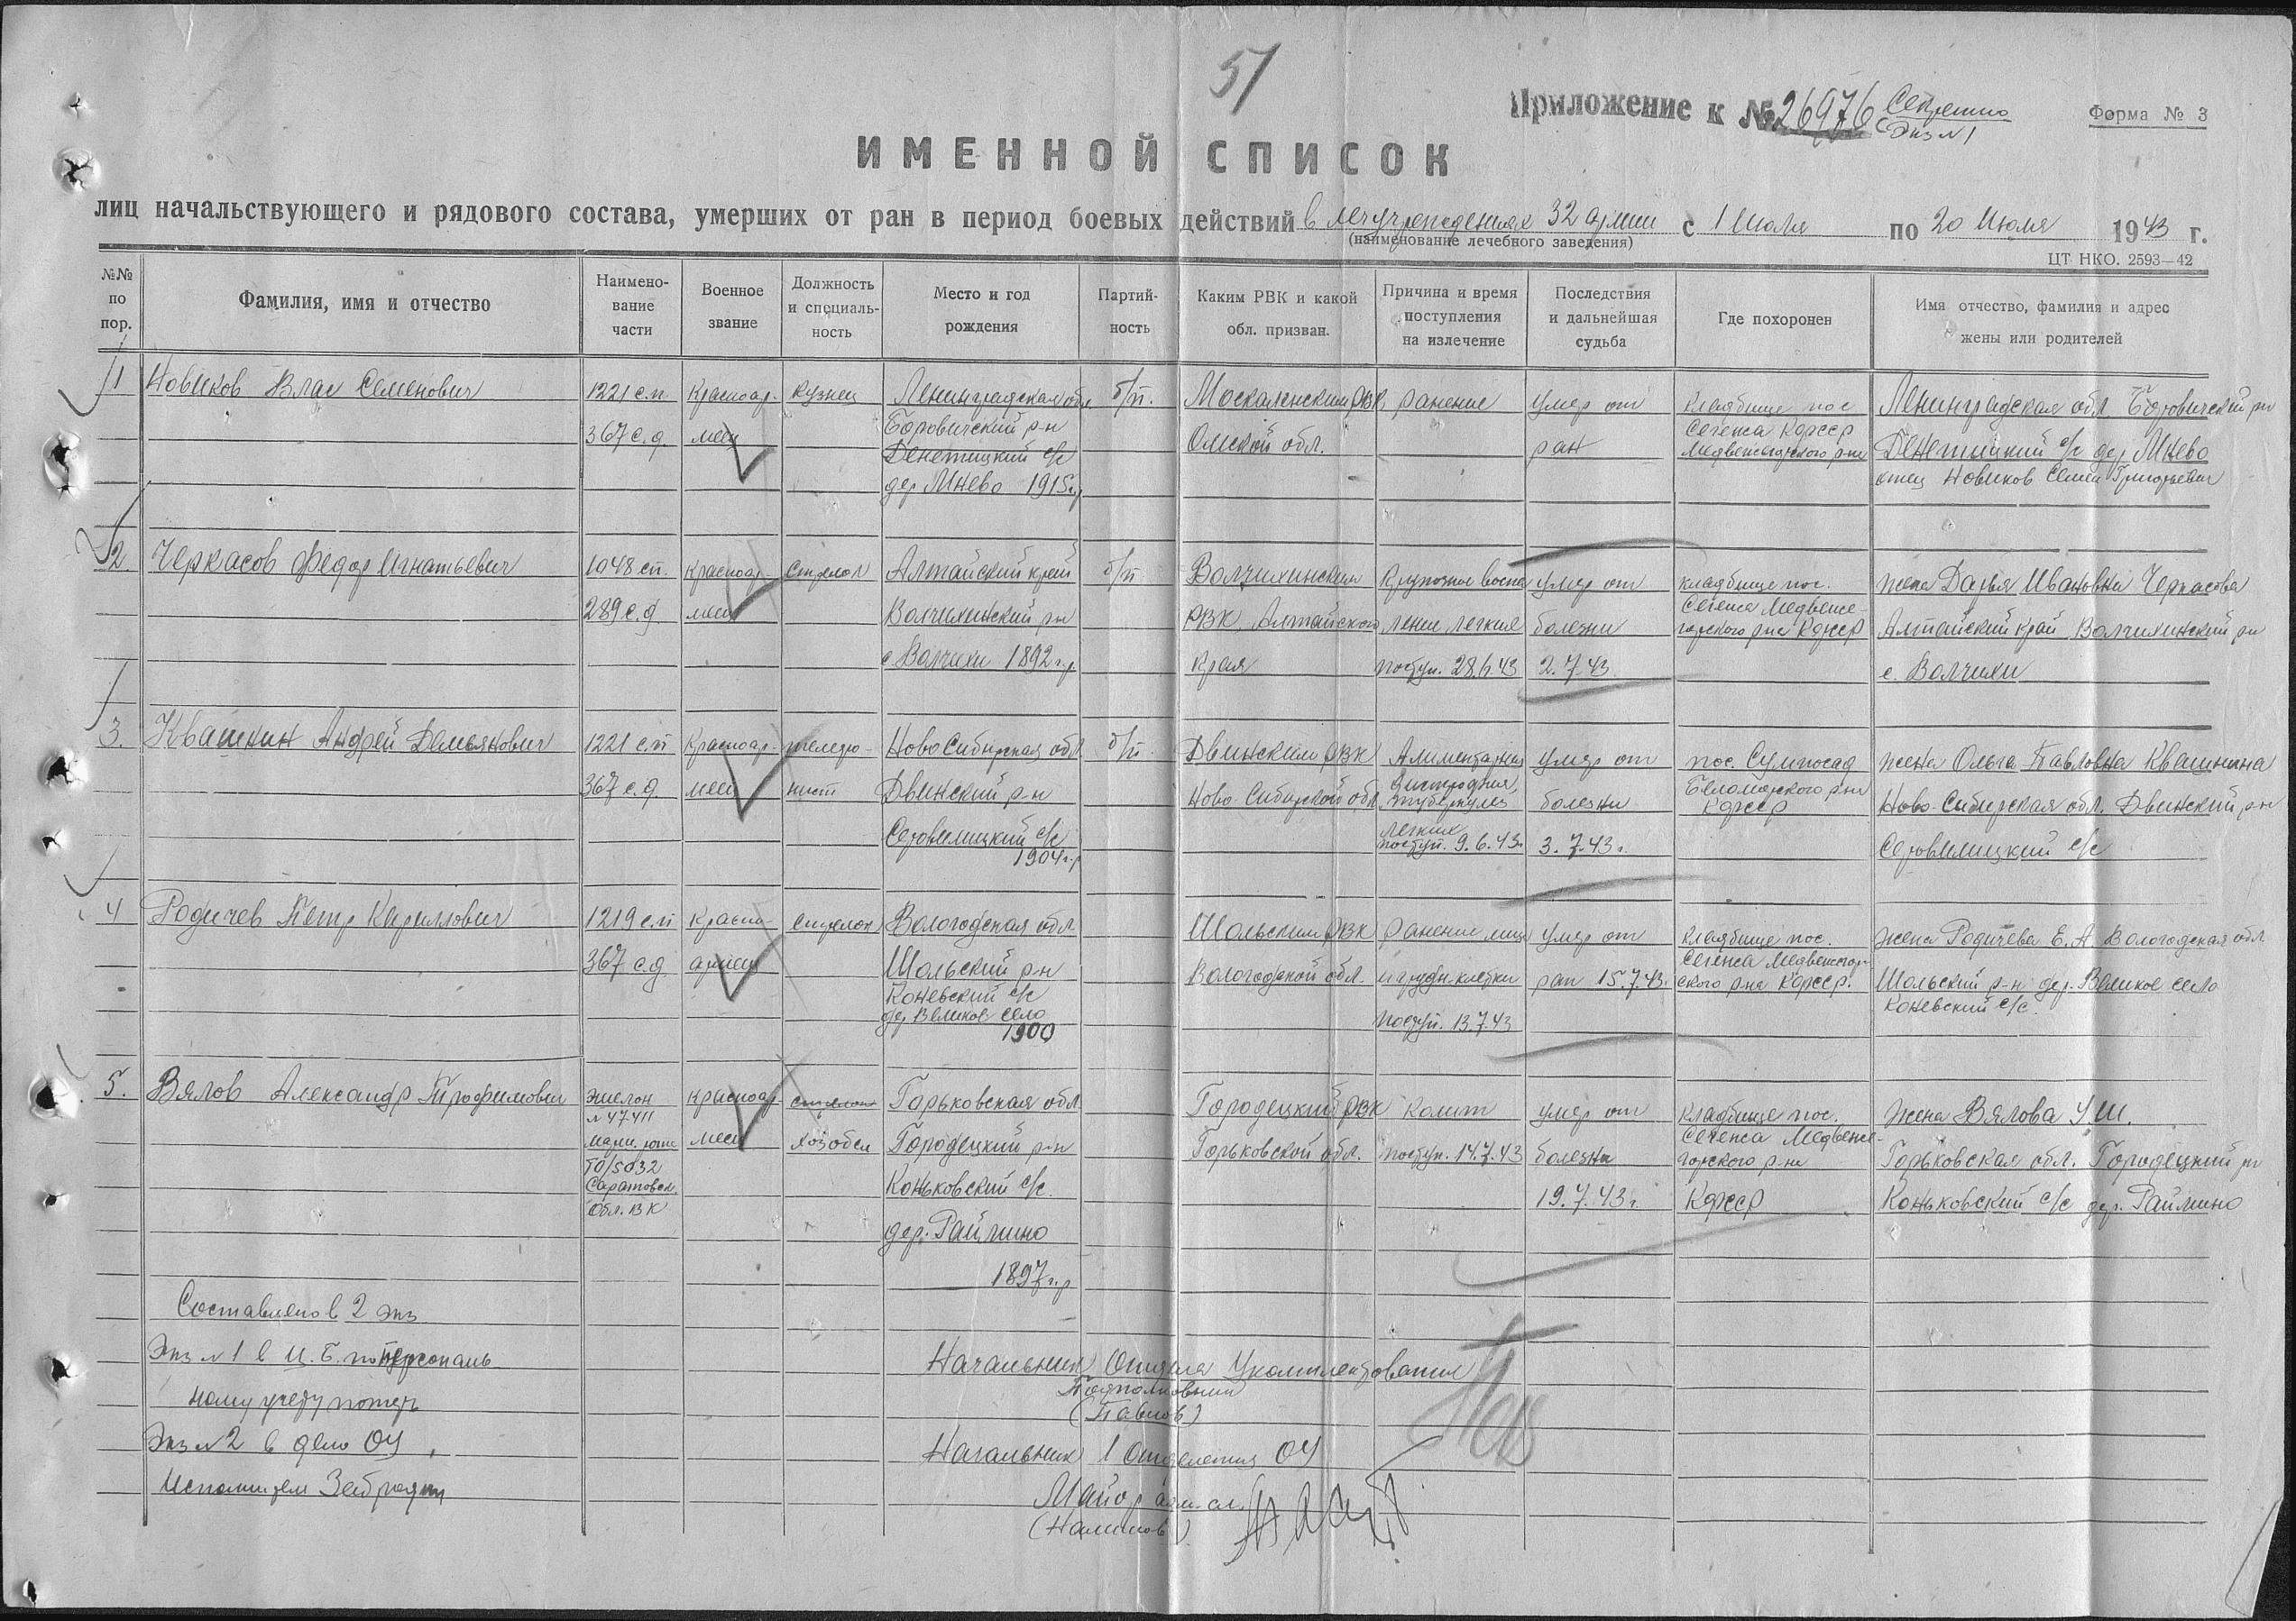 51
Приложение к № 26976 Секретно
Экз N 1
Форма № 3
ИМЕННОЙ СПИСОК
лиц начальствующего и рядового состава, умерших от ран в период боевых действий в лечучреждениях 32 армии с 1 июля по 20 июля 1943 г.
(наименование лечебного заведения)
ЦТ НКО. 2593—42
№№ по пор.
Фамилия, имя и отчество
Наимено-вание части
Военное звание
Должность и специаль-ность
Место и год рождения
Партий-ность
Каким РВК и какой обл. призван.
Причина и время поступления на излечение
Последствия и дальнейшая судьба
Где похоронен
Имя отчество, фамилия и адрес жены или родителей
1
Новиков Влас Семенович
1221 с.п.
367 с.д.
Красноар-
меец
Кузнец
Ленинградская обл
Боровичский р-н
Денетицкий с/с
дер Мнево 1915г.
б/п.
Москаленским РВК
Омской обл.
ранение
умер от
ран
Кладбище пос
Сегежа КФССР
Медвежегорского р-на
Ленинградская обл Боровичский р-н
Денетицкий с/с дер Мнево
отец Новиков Семен Григорьевич
2.
Черкасов Федор Игнатьевич
1048 сп.
289 с.д.
Красноар-
меец
Стрелок
Алтайский край
Волчихинский р-н
с Волчихи 1892 г.р.
б/п
Волчихинским
РВК, Алтайского
края
Крупозное воспа
ление легких
поступ. 28.6.43
умер от
болезни
2.7.43
кладбище пос.
Сегежа Медвеже-
горского р-на КФССР
жена Дарья Ивановна Черкасова
Алтайский край Волчихинский р-н
с. Волчихи
3.
Квашнин Андрей Демьянович
1221 с.п
367 с.д.
Красноар-
меец
телефо-
нист
Ново Сибирская обл.
Двинский р-н
с/с
1904 г.р
б/п.
Двинским РВК
Ново Сибирской обл
Алиментарная
дистрофия,
туберкулез
легких
поступ. 9.6.43г
умер от
болезни
3.7.43г.
пос. Сумпосад
Беломорского р-на
КФССР
жена Ольга Павловна Квашнина
Ново-Сибирская обл. Двинский р-н
с/с
4
Родичев Петр Кириллович
1219 с.п
367 с.д.
Красно-
армеец
стрелок
Вологодская обл
Шольский р-н
Коневский с/с
дер Великое село
1900
Шольским РВК
Вологодской обл.
ранение лица
и грудн. клетки
поступ. 13.7.43
умер от
ран 15.7.43г.
Кладбище пос.
Сегежа Медвежегор-
ского р-на КФССР.
жена Родичева Е.А Вологодская обл.
Шольский р-н дер. Великое село
Коневский с/с.
5.
Вялов Александр Трофимович
эшелон
N 47411
ТО/5032
Саратовск.
Обл. ВК
Красноар
меец
стрелок
Горьковская обл
Городецкий р-н
Коньковский с/с.
дер. Райлино
1897 г.р
Городецкий РВК
Горьковской обл.
Колит
поступ. 14.7.43
умер от
болезни
19.7.43г.
Кладбище пос.
Сегежа Медвеже-
горского р-на
КФССР
жена Вялова У.Ш.
Горьковская обл. Городецкий р-н
Коньковский с/с дер. Райлино
Составлено в 2 экз
Экз N 1 в Ц.Б. по персональ-
ному учету потерь
Экз N 2 в дело ОУ
Начальник Отдела Укомплектования
Подполковник
(Павлов)
Начальник 1 Отделения ОУ
Майор адм. сл.